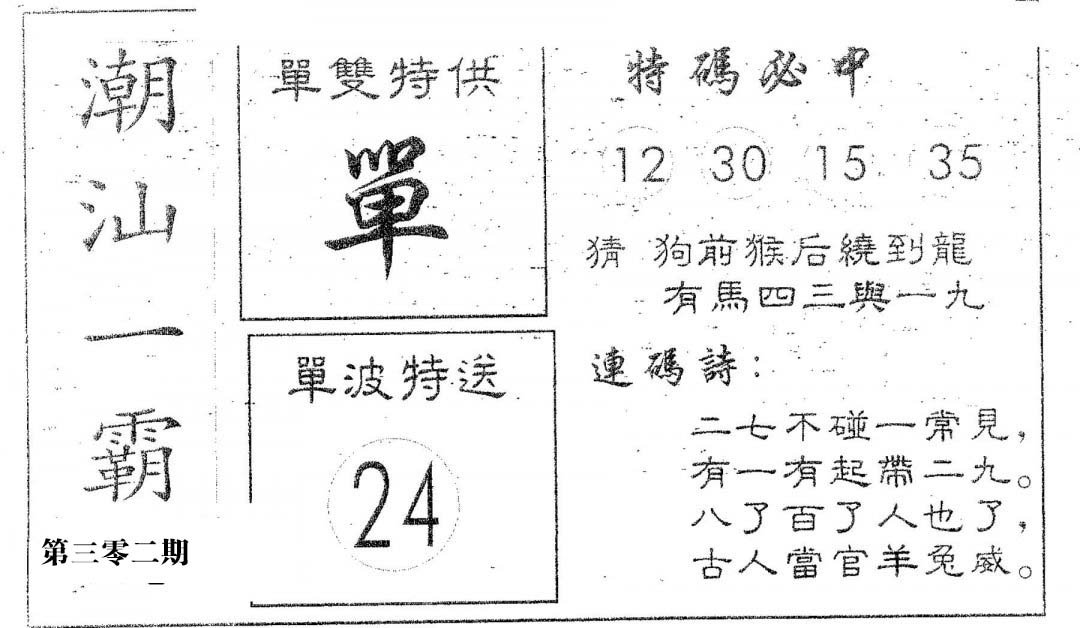 潮汕一霸
第三零二期
單雙特供
單
單波特送
24
特碼必中
12 30 15 35
猜 狗前猴后繞到龍
有馬四三與一九
連碼詩：
二七不碰一常見，
有一有起帶二九。
八了百了人也了，
古人當官羊兔威。